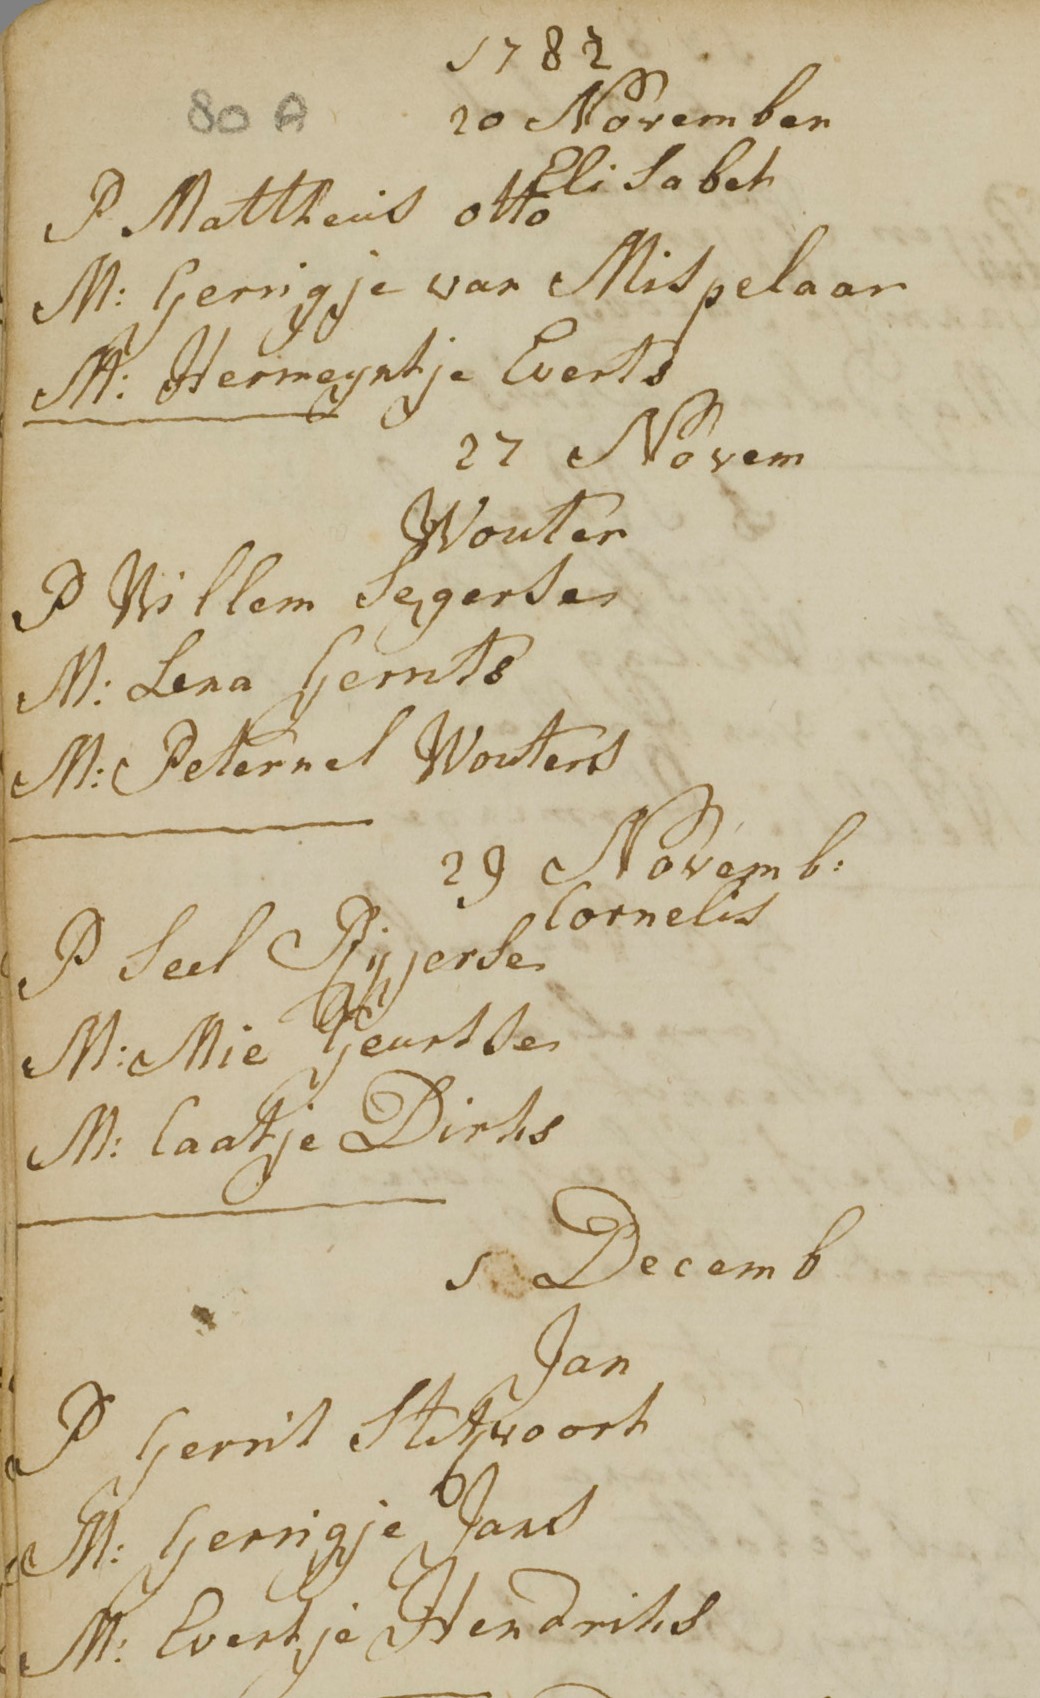 1782
80 A
20 November
Elisabet
P Mattheus otto
M: Gerrigje van Mispelaar
M: Hermeyntje Everts
27 Novem
Wouter
P Willem Segersen
M: Lena Gerrits
M: Peternel Wouters
29 Novemb:
Cornelis
P Seel Rijersen
M: Mie Geurtsen
M: Caatje Dirks
1 Decemb
Jan
P Gerrit
M: Gerrigje Jans
M: Evertje Hendriks